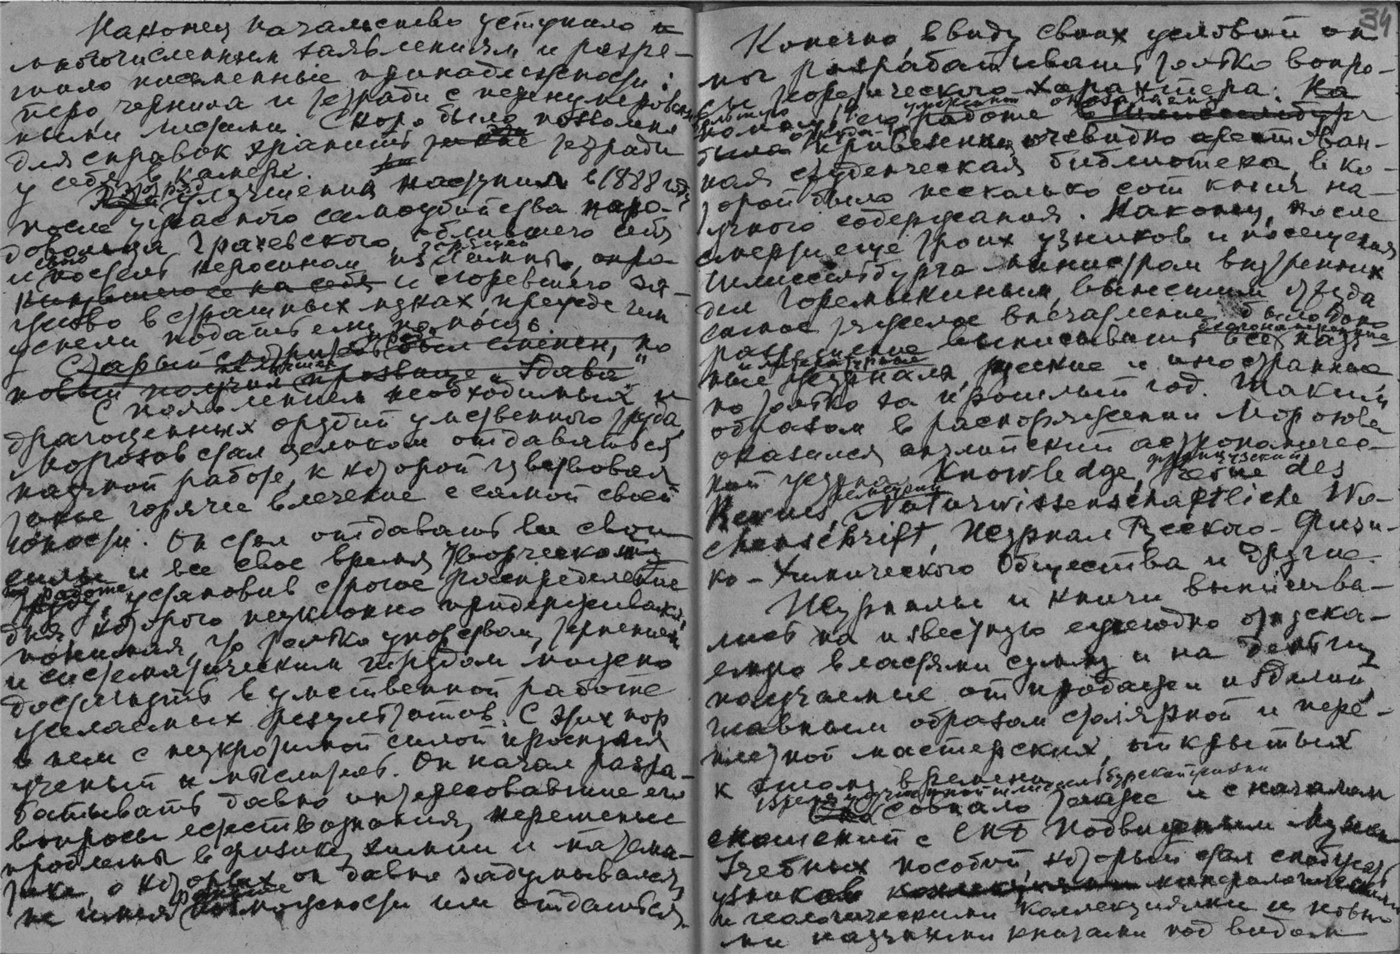 Наконец начальство уступило и
многочисленным заявлениям и разре-
шило письменные принадлежности:
перо, чернила и тетради с перенумерован-
ными листами. Скоро было позволено
для справок хранить такие тетради
у себя в камере.
улучшения наступил в 1888 году
после ужасного самоубийства наро-
довольца Грачевского, облившего себя
и постель керосином из лампы, опро-
кинувшего ее на себя и сгоревшего за-
живо в страшных муках, прежде чем
успели подать ему помощь.
Старый смотритель был сменен, но
новый получил прозвище "Удава"
С появлением необходимых и
драгоценных орудий умственного труда,
Морозов стал целиком отдаваться
научной работе, к которой чувствовал
такое горячее влечение с самой своей
юности. Он стал отдавать ей свои
силы и все свое время творческому
труду, работе установив строгое распределение
дня, которого неуклонно придерживался,
понимая, что только упорством, терпением
и систематическим трудом можно
достигнуть в умственной работе
желаемых результатов. С этих пор
в нем с неукротимой силой проснулся
ученый и мыслитель. Он начал разра-
батывать давно интересовавшие его
вопросы естествознания, нерешенные
проблемы в физике, химии и матема-
тике, о которых он давно задумывался,
не имея возможности им отдаться.
34
Конечно, ввиду своих условий он
мог разрабатывать только вопро-
сы теоретического характера. На
помощь его работе в Шлиссельбург
была привезена, очевидно арестован-
ная студенческая библиотека, в ко-
торой было несколько сот книг на-
учного содержания. Наконец, после
смерти еще троих узников и посещения
Шлиссельбурга министром внутренних
дел Горемыкиным, вынесшим оттуда
самое тяжелое впечатление, было
разрешение выписывать все науч-
ные журналы, русские и иностранные
но только за прошлый год. Таким
образом в распоряжении Морозова
оказался английский астрономичес-
кий журнал Knowledge, французский Revue des
Revues, немецкий Naturwissenschaftliche Wo-
chenschrift, Журнал Русского Физи-
ко-Химического Общества и другие.
Журналы и книги выписыва-
лись на известную ежегодно отпуска-
емую властями сумму и на деньги,
получаемые от продажи изделий,
главным образом столярной и пере-
плетной мастерских, открытых
к этому времени
совпало также и с началом
сношений с СПБ Подвижным Музеем
Учебных пособий, который стал снабжать
узников минералогическими
и геологическими коллекциями и новы-
ми научными книгами под видом